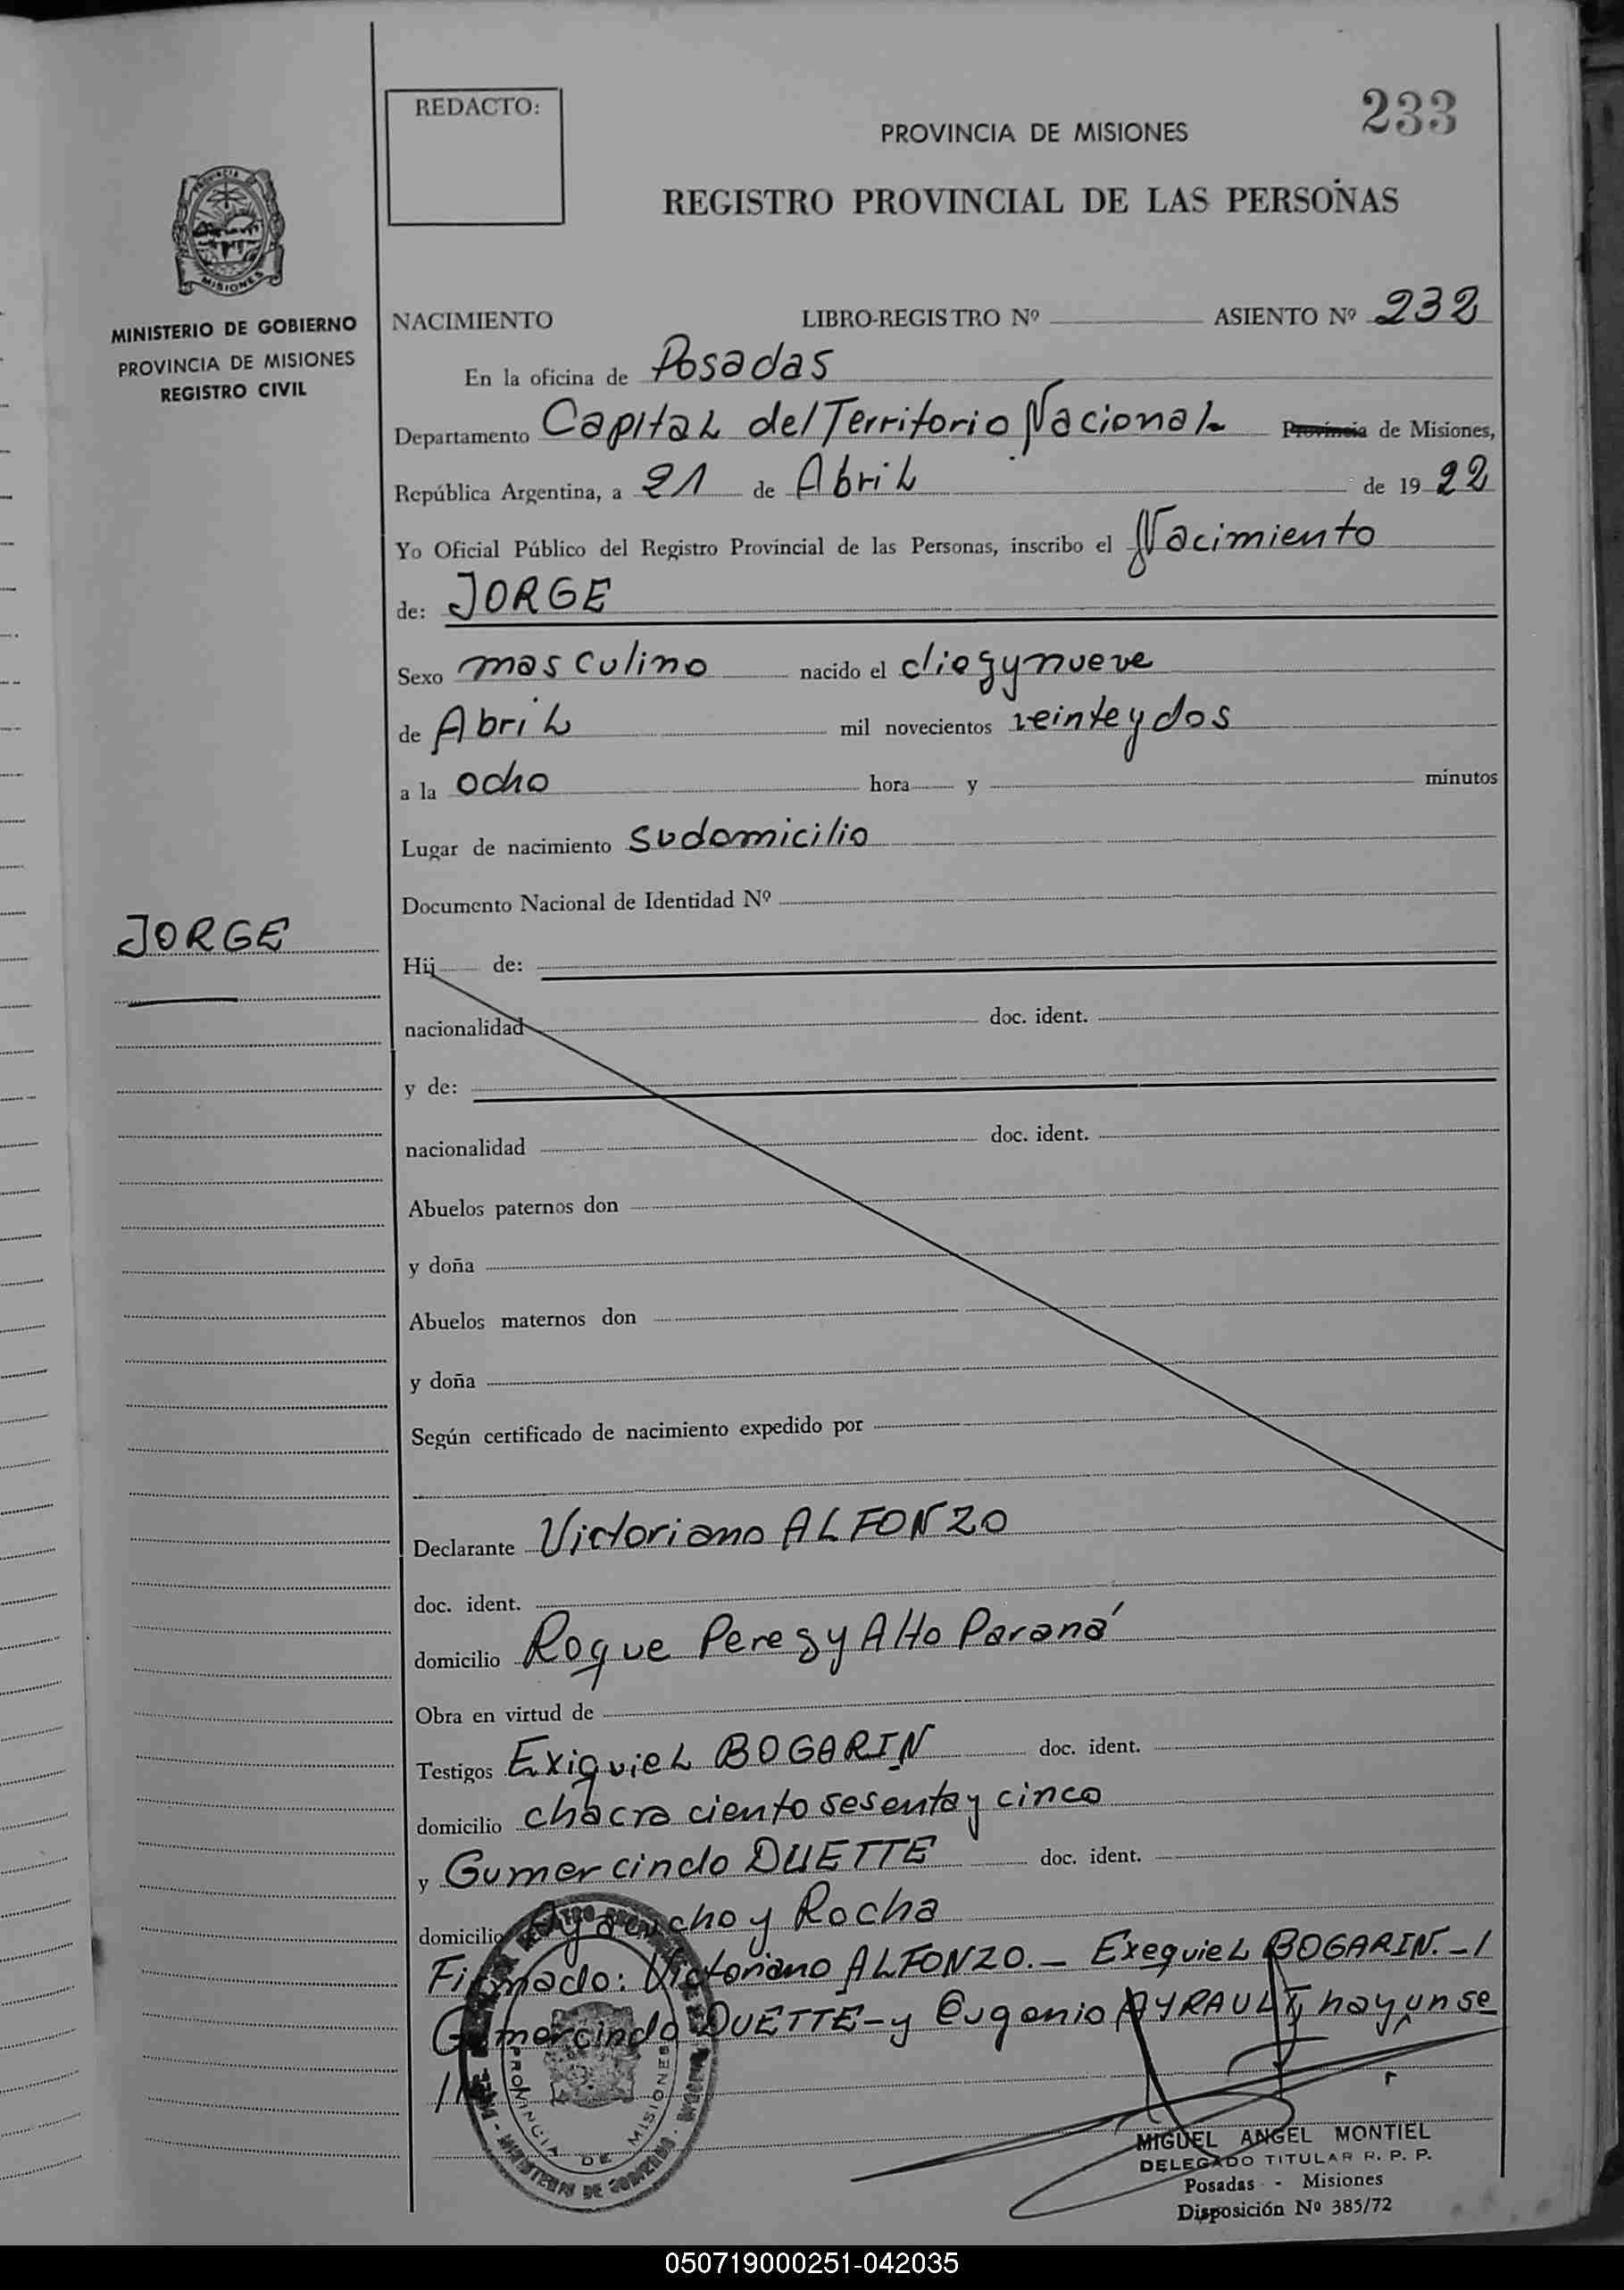 REDACTO:
233
PROVINCIA DE MISIONES
REGISTRO PROVINCIAL DE LAS PERSONAS
MISIONES
MINISTERIO DE GOBIERNO
PROVINCIA DE MISIONES
REGISTRO CIVIL
NACIMIENTO LIBRO-REGISTRO Nº ASIENTO Nº 232
En la oficina de Posadas
Departamento Capital del Territorio Nacional Provincia de Misiones,
República Argentina, a 21 de Abril de 1922
Yo Oficial Público del Registro Provincial de las Personas, inscribo el Nacimiento
de: JORGE
Sexo masculino nacido el diezynueve
de Abril mil novecientos veinteydos
a la ocho hora y minutos
Lugar de nacimiento sudomicilio
Documento Nacional de Identidad Nº
JORGE
Hij de:
nacionalidad doc. ident.
y de:
nacionalidad doc. ident.
Abuelos paternos don
y doña
Abuelos maternos don
y doña
Según certificado de nacimiento expedido por
Declarante Victoriano ALFONZO
doc. ident.
domicilio Roque Perez y Alto Paraná
Obra en virtud de
Testigos Exiquiel BOGARIN doc. ident.
domicilio chacra ciento sesenta y cinco
y Gumercindo DUETTE doc. ident.
domicilio Ayacucho y Rocha
Firmado: Victoriano ALFONZO.- Exequiel BOGARIN.-/
Gumercindo DUETTE-y Eugenio AYRAULT, hay un se
PROVINCIA DE MISIONES
MINISTERIO DE GOBIERNO
MIGUEL ANGEL MONTIEL
DELEGADO TITULAR R. P. P.
Posadas - Misiones
Disposición Nº 385/72
050719000251-042035